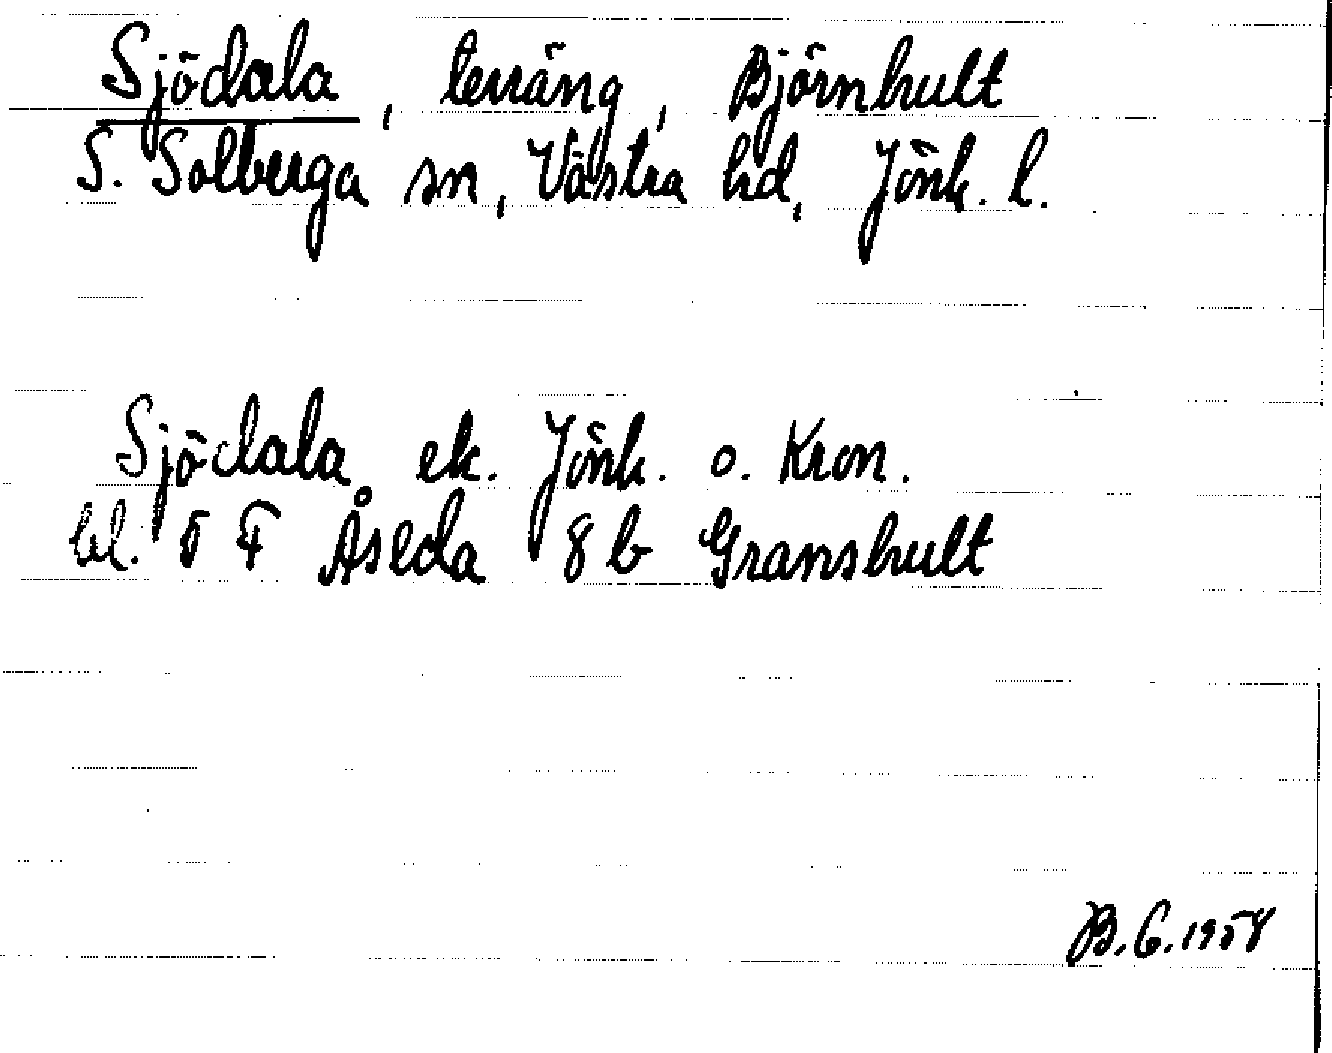 Sjödala, terräng, Björnhult
S. Solberga sn, Västra hd, Jönk. l.
Sjödala ek. Jönk. o. Kron.
bl. 5 F Åseda 8 b Granshult
B.G. 1958